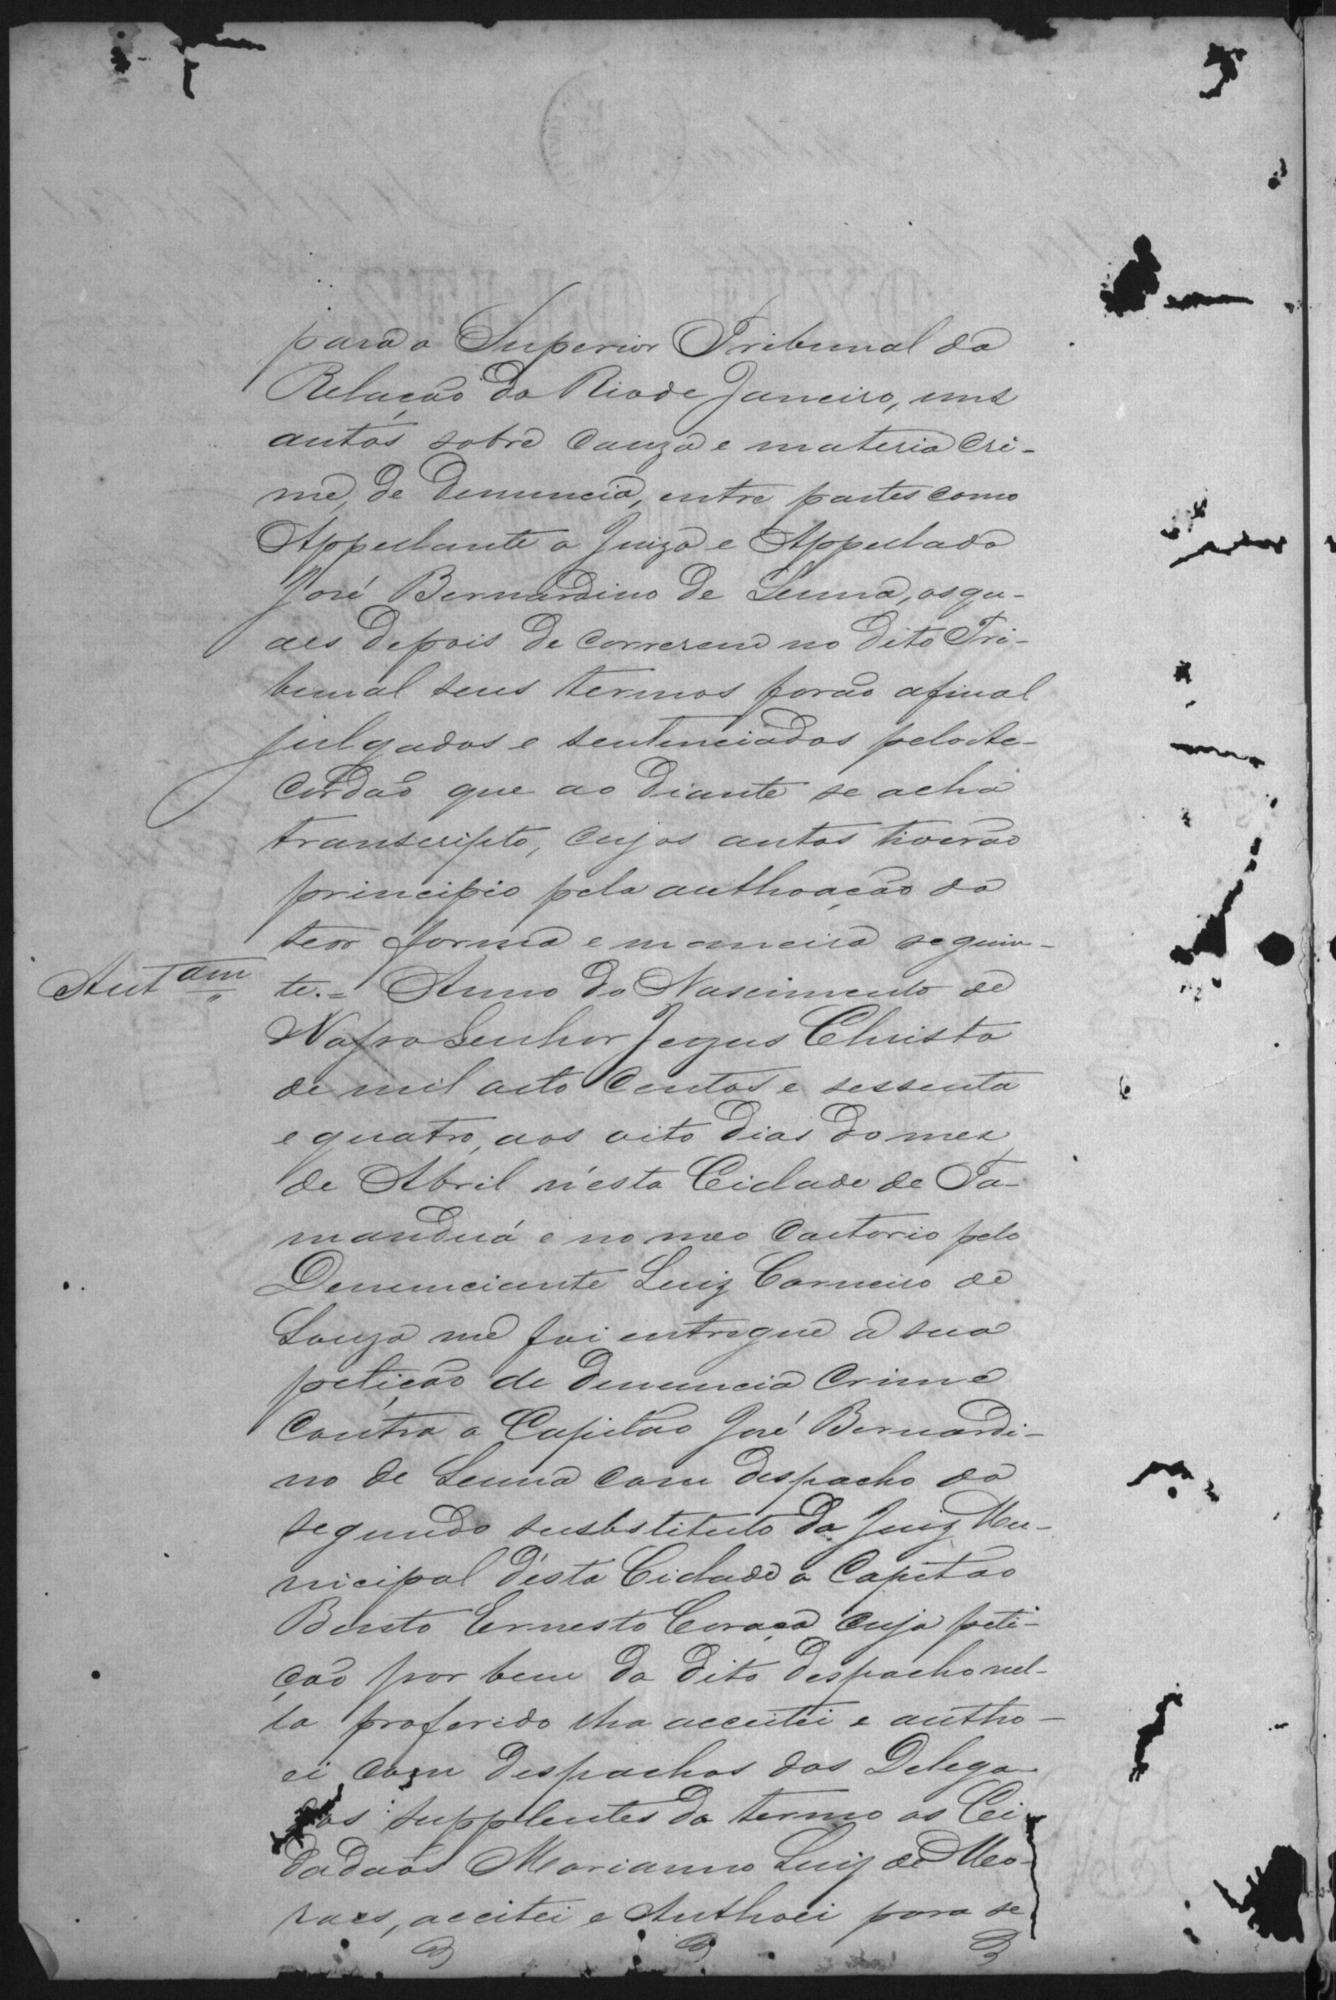 para o Superior Tribunal da
Relação do Rio de Janeiro, uns
autos sobre cauza e materia cri-
me, de denuncia, entre partes como
Appellante o Juizo e Appellado
José Bernardino de Senna, os qu-
aes depois de correrem no dito Tri-
bunal seus termos forão afinal
julgados e sentenciados pelo Ac-
cordão que ao diante se acha
transcripto, cujos autos tiverão
principio pela authoação do
teor forma e maneira seguin-
Aut.am te. = Anno do Nascimento de
Nosso Senhor Jezus Christo
de mil oito centos e sessenta
e quatro, aos oito dias do mez
de Abril n'esta Cidade de Ta-
manduá e no meo Cartorio pelo
Denunciante Luiz Carneiro de
Souza me foi entregue a sua
petição de denuncia crime
contra o Capitão José Bernardi-
no de Senna com despacho do
segundo susbstituto do Juiz Mu-
nicipal d'esta Cidade o Capitão
Bento Ernesto Coraça cuja peti-
ção por bem do dito despacho nel-
la proferido lha acceitei e autho-
ei com despachos dos Delega-
dos supplentes do termo os Ci-
dadãos Marianno Luiz de Mo-
raes, acceitei e Authoei para se